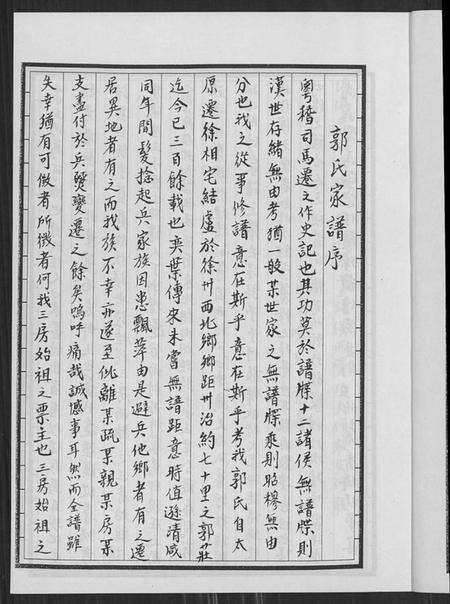 郭氏家譜序
粵稽司馬遷之作史記也其功莫於譜牒十二諸侯無譜牒則
漢世存緒無由考猶一般某世家之無譜牒乘則昭穆無由
分也我之從事修譜意在斯乎意在斯乎考我郭氏自太
原遷徐相宅結廬於徐州西北鄉鄉距州治約七十里之郭莊
迄今已三百餘載也奕葉傳宋未嘗無譜距意時值遜清咸
同年間髮捻起兵家族因患飄萍由是避兵他鄉者有之遷
居異地者有之而我族不幸亦遂至仳離某疏某親某房某
支盡付於兵燹變遷之餘矣嗚呼痛哉誠憾事耳然而全譜雖
失幸猶有可徵者所徵者何我三房始祖之票主也三房始祖之